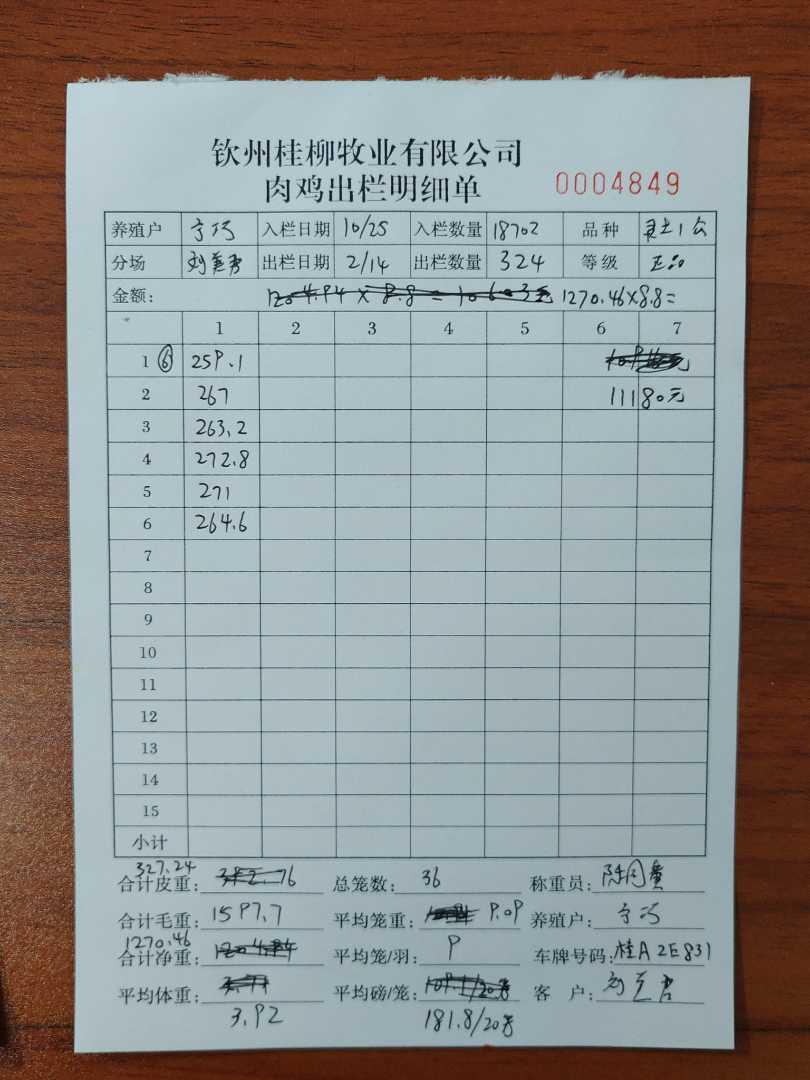 钦州桂柳牧业有限公司
肉鸡出栏明细单 0004849
养殖户 宁巧 入栏日期 10/25 入栏数量 18702 品种 土1公
分场 出栏日期 2/14 出栏数量 324 等级 正品
金额: 1204.94×8.8=10603元 1270.46×8.8=
1 2 3 4 5 6 7
1 ⑥ 259.1
2 267 11180元
3 263.2
4 272.8
5 271
6 264.6
7
8
9
10
11
12
13
14
15
小计
327.24
合计皮重: 总笼数: 36 称重员:
合计毛重: 1597.7 平均笼重: 9.09 养殖户: 宁巧
1270.46
合计净重: 1204.94 平均笼/羽: 9 车牌号码: 桂A2E831
平均体重: 平均磅/笼: 客户:
3.92 181.8/20